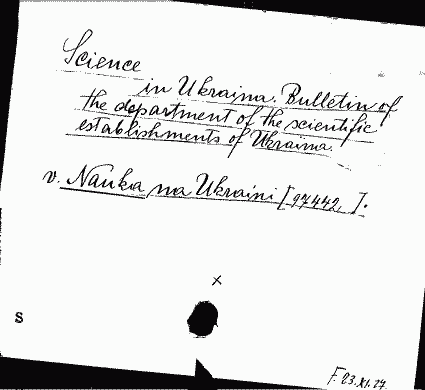 Science
in Ukraina. Bulletin of
the department of the scientific
establishments of Ukraina.
v. Nauka na Ukraini [97442, ].
x
S
F. 23.XI.27